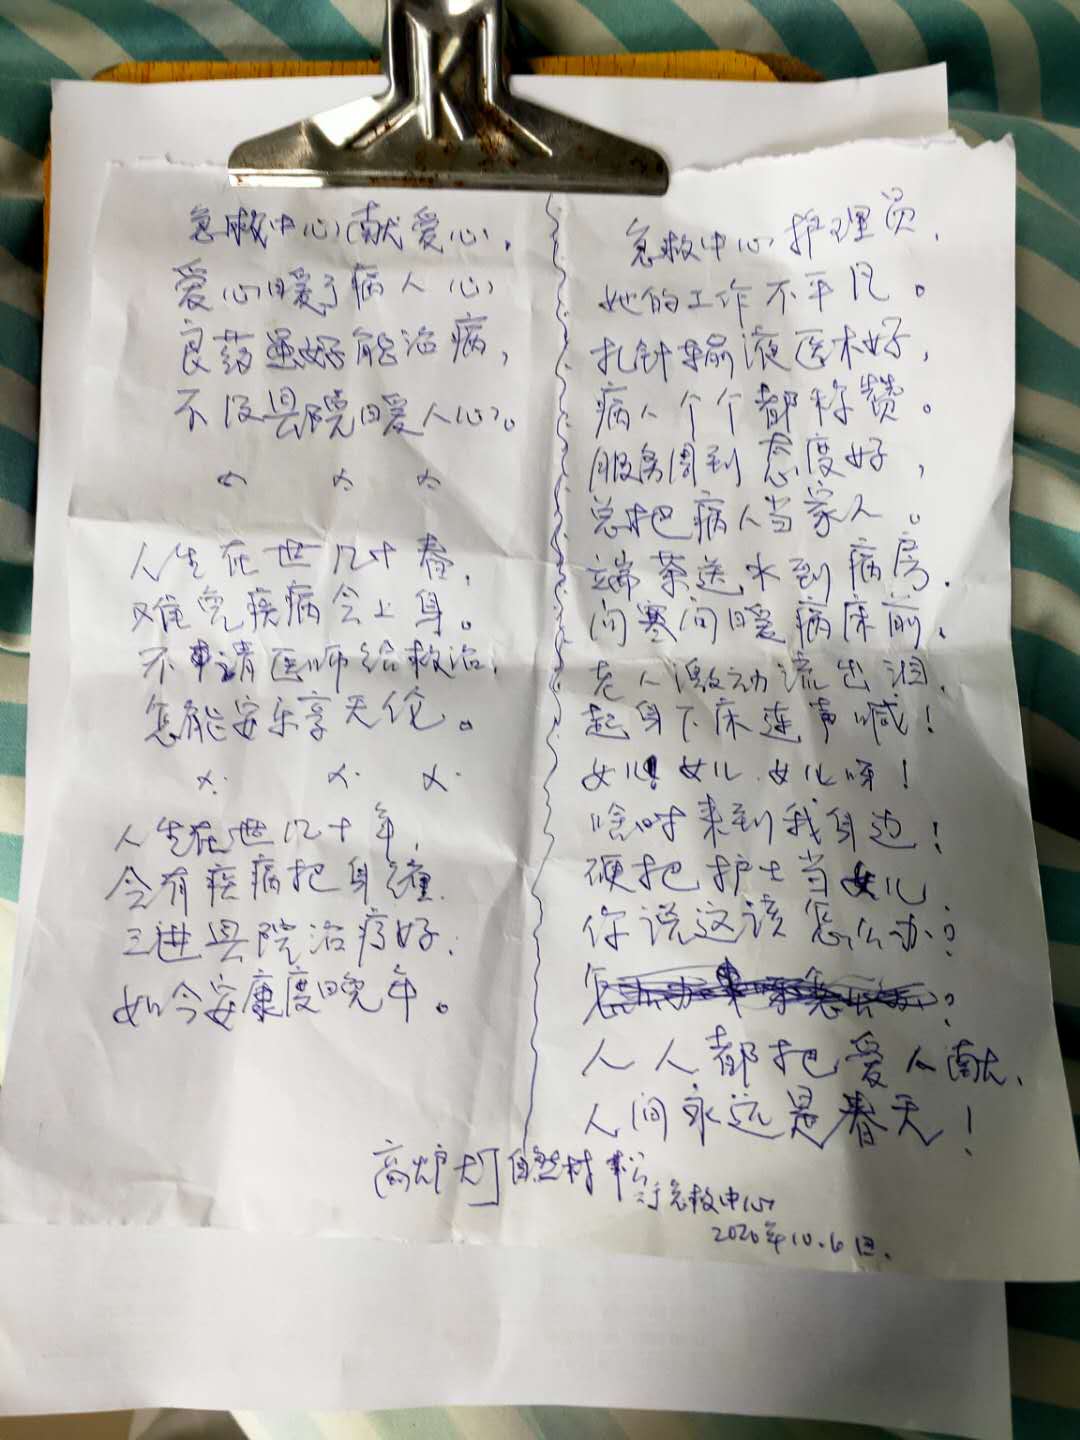 急救中心献爱心，
爱心暖了病人心
良药虽好能治病，
不及县院暖人心。
人生在世几十春，
难免疾病会上身。
不申请医师给救治，
怎能安乐享天伦。
人生在世几十年，
会有疾病把身缠
三进县院治疗好，
如今安康度晚年。
急救中心护理员，
她的工作不平凡。
扎针输液医术好，
病人个个都称赞。
服务周到态度好，
总把病人当家人。
端茶送水到病房，
问寒问暖病床前，
老人激动流出泪，
起身下床连声喊！
女儿！女儿女儿呀！
啥时来到我身边！
硬把护士当女儿
你说这该怎么办？
人人都把爱心献，
人间永远是春天！
高炉 自然村
于急救中心
2020年10.6日.